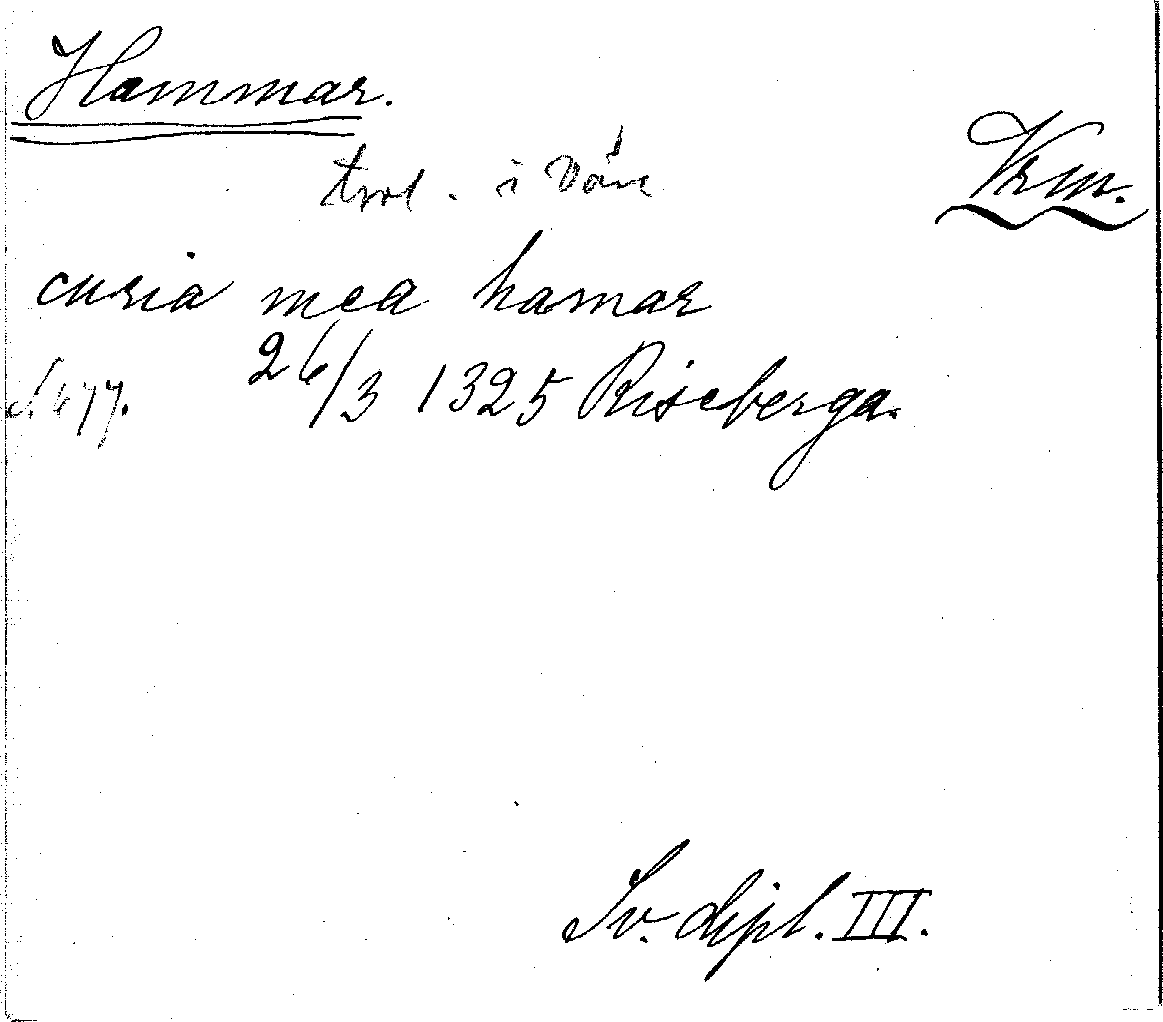 Hammar.
Vrm.
trol. i Vån
curia mea hamar
s. 677. 26/3 1325 Riseberga.
Sv. dipl. III.